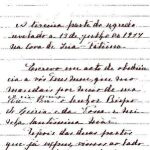 A terceira parte do segredo
revelado a 13 de julho de 1917
na Cova de Iria - Fátima.
Escrevo em acto de obediên-
cia a vós Deus meu, que mo
mandais por meio de sua
Ex.cia Rev.ma o Senhor Bispo
de Leiria e da Vossa e mi-
nha Santíssima Mãe.
Depois das duas partes
que já expus, vimos ao lado